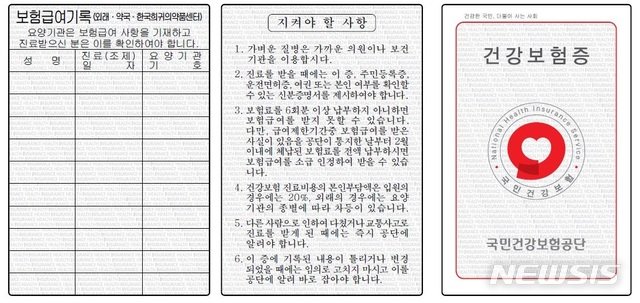 보험급여기록(외래·약국·한국희귀의약품센터)
요양기관은 보험급여 사항을 기재하고
진료받으신 분은 이를 확인하여야 합니다.
성 명
진료(조제)
일 자
요양기관
기 호
지켜야 할 사항
1. 가벼운 질병은 가까운 의원이나 보건
기관을 이용합시다.
2. 진료를 받을 때에는 이 증, 주민등록증,
운전면허증, 여권 또는 본인 여부를 확인할
수 있는 신분증명서를 제시하여야 합니다.
3. 보험료를 6회분 이상 납부하지 아니하면
보험급여를 받지 못할 수 있습니다.
다만, 급여제한기간중 보험급여를 받은
사실이 있음을 공단이 통지한 날부터 2월
이내에 체납된 보험료를 전액 납부하시면
보험급여를 소급 인정하여 받을 수 있습
니다.
4. 건강보험 진료비용의 본인부담액은 입원의
경우에는 20%, 외래의 경우에는 요양
기관의 종별에 따라 차등이 있습니다.
5. 다른 사람으로 인하여 다쳤거나 교통사고로
진료를 받게 된 때에는 즉시 공단에
알려야 합니다.
6. 이 증에 기록된 내용이 틀리거나 변경
되었을 때에는 임의로 고치지 마시고 이를
공단에 알려 바로 잡아야 합니다.
건강한 국민, 더불어 사는 사회
건강보험증
National Health Insurance Service
국민건강보험
국민건강보험공단
NEWSIS